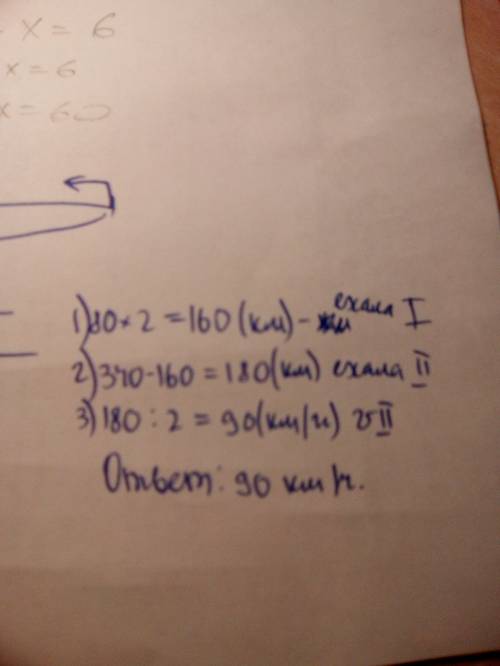 x = 6
x = 6
x = 60
1) 80 * 2 = 160 (км) - ехала I
2) 340 - 160 = 180 (км) ехала II
3) 180 : 2 = 90 (км/ч) v II
Ответ: 90 км/ч.